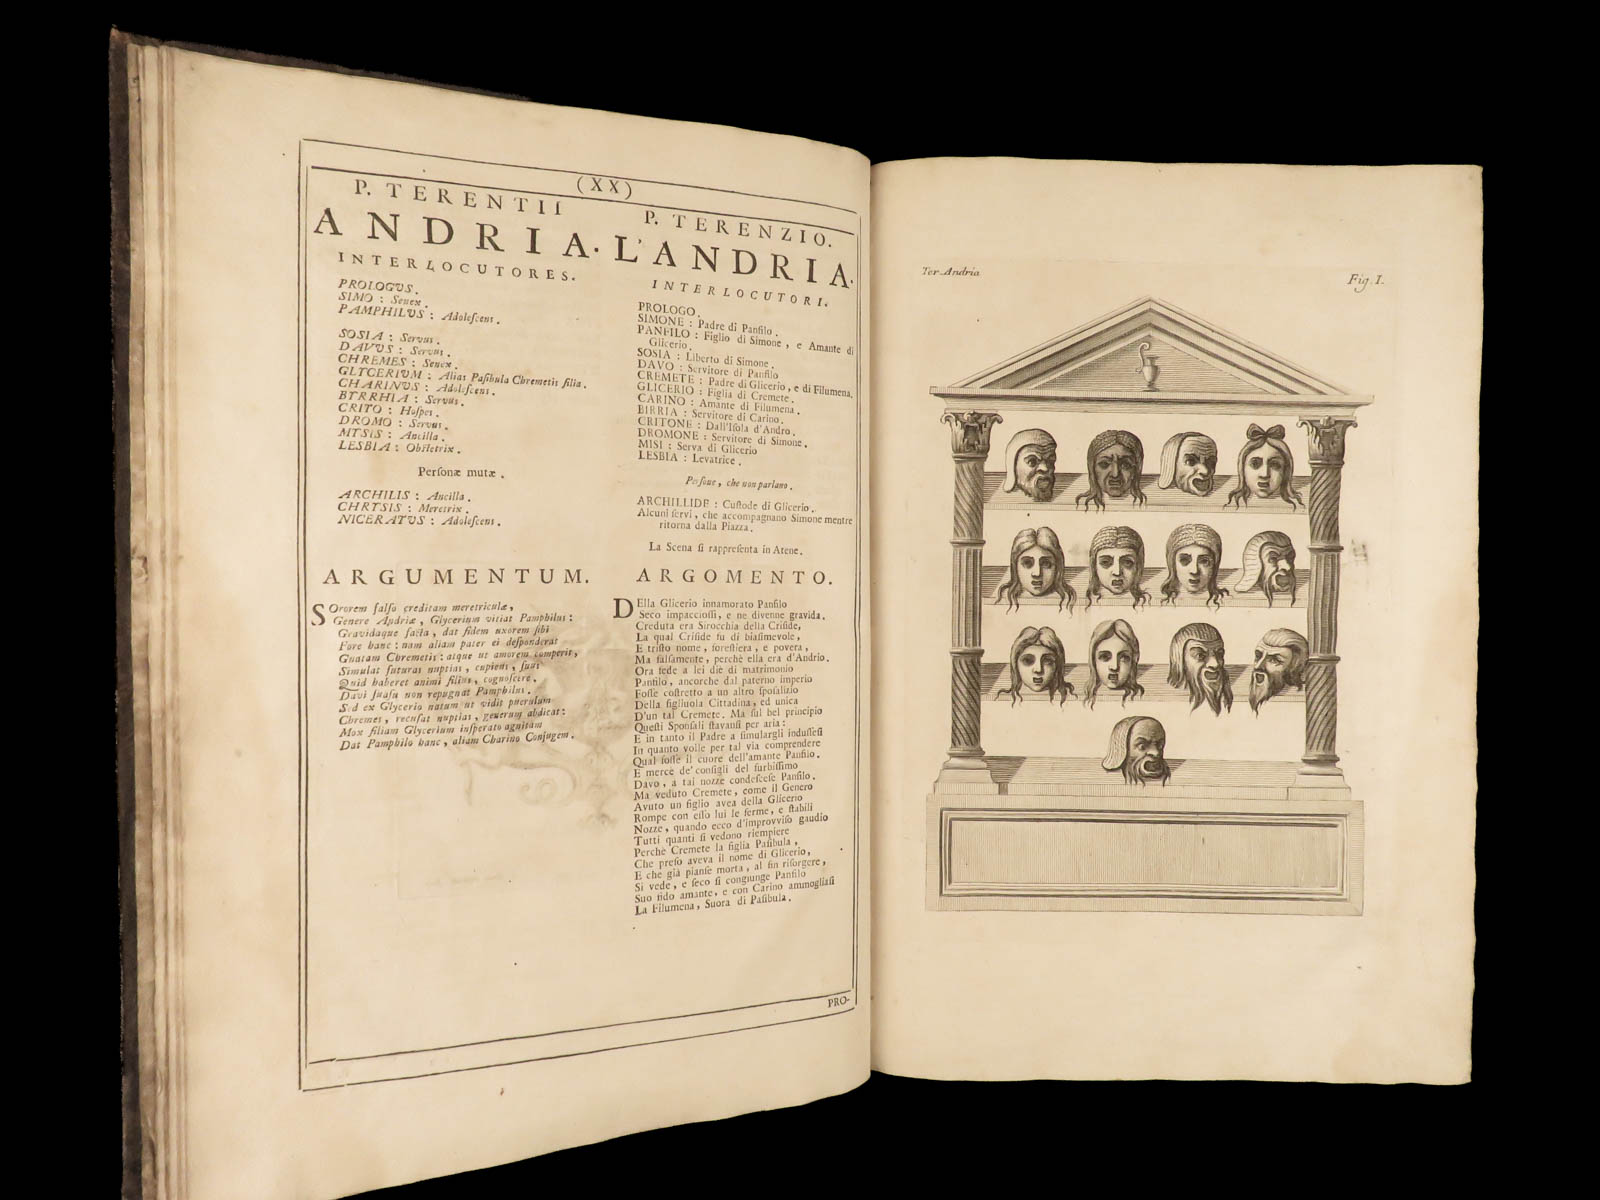 (XX)
P. TERENTII
ANDRIA.
INTERLOCUTORES.
PROLOGVS.
SIMO : Senex.
PAMPHILVS : Adoleſcens.
SOSIA : Servus.
DAVVS : Servus.
CHREMES : Senex.
GLYCERIVM : Alias Paſibula Chremetis filia.
CHARINVS : Adoleſcens.
BYRRHIA : Servus.
CRITO : Hoſpes.
DROMO : Servus.
MYSIS : Ancilla.
LESBIA : Obſtetrix.
Perſonæ mutæ.
ARCHILIS : Ancilla.
CHRYSIS : Meretrix.
NICERATVS : Adoleſcens.
ARGUMENTUM.
SOrorem falſo creditam meretriculæ,
Genere Andriæ, Glycerium vitiat Pamphilus:
Gravidaque facta, dat fidem uxorem ſibi
Fore hanc: nam aliam pater ei deſponderat
Gnatam Chremetis: atque ut amorem comperit,
Simulat futuras nuptias, cupiens, ſuus
Quid haberet animi filius, cognoſcere.
Davi ſuaſu non repugnat Pamphilus.
Sed ex Glycerio natum ut vidit puerulum
Chremes, recuſat nuptias, generum abdicat:
Mox filiam Glycerium inſperato agnitam
Dat Pamphilo hanc, aliam Charino Conjugem.
P. TERENZIO.
L'ANDRIA.
INTERLOCUTORI.
PROLOGO.
SIMONE : Padre di Panfilo.
PANFILO : Figlio di Simone, e Amante di
Glicerio.
SOSIA : Liberto di Simone.
DAVO : Servitore di Panfilo
CREMETE : Padre di Glicerio, e di Filumena.
GLICERIO : Figlia di Cremete.
CARINO : Amante di Filumena.
BIRRIA : Servitore di Carino.
CRITONE : Dall'Iſola d'Andro.
DROMONE : Servitore di Simone.
MISI : Serva di Glicerio
LESBIA : Levatrice.
Perſone, che non parlano.
ARCHILLIDE : Cuſtode di Glicerio.
Alcuni ſervi, che accompagnano Simone mentre
ritorna dalla Piazza.
La Scena ſi rappreſenta in Atene.
ARGOMENTO.
DElla Glicerio innamorato Panfilo
Seco impaccioſſi, e ne divenne gravida.
Creduta era Sirocchia della Criſide,
La qual Criſide fu di biaſimevole,
E triſto nome, foreſtiera, e povera,
Ma falſamente, perchè ella era d'Andrio.
Ora fede a lei diè di matrimonio
Panfilo, ancorche dal paterno imperio
Foſſe coſtretto a un altro ſpoſalizio
Della figliuola Cittadina, ed unica
D'un tal Cremete. Ma ſul bel principio
Queſti Sponſali ſtavanſi per aria:
E in tanto il Padre a ſimulargli induſſeſi
In quanto volle per tal via comprendere
Qual foſſe il cuore dell'amante Panfilo.
E merce de' conſigli del furbiſſimo
Davo, a tai nozze condeſceſe Panfilo.
Ma veduto Cremete, come il Genero
Avuto un figlio avea della Glicerio
Rompe con eſſo lui le ferme, e ſtabili
Nozze, quando ecco d'improvviſo gaudio
Tutti quanti ſi vedono riempiere
Perchè Cremete la figlia Paſibula,
Che preſo aveva il nome di Glicerio,
E che già pianſe morta, al fin riſorgere,
Si vede, e ſeco ſi congiunge Panfilo
Suo fido amante, e con Carino ammogliaſi
La Filumena, Suora di Paſibula.
PRO-
Ter. Andria
Fig. I.